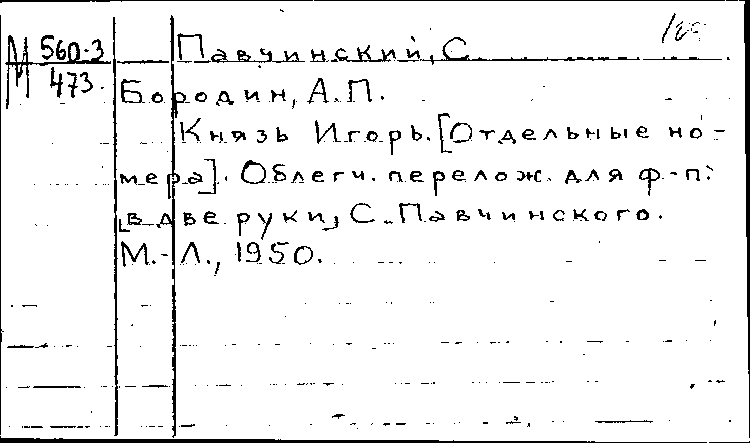 М 560-3 Павчинский, С.
473.
Бородин, А.П.
Князь Игорь. [Отдельные но-
мера]. Облегч. перелож. для ф-п.
[в две руки] С. Павчинского.
М.-Л., 1950.